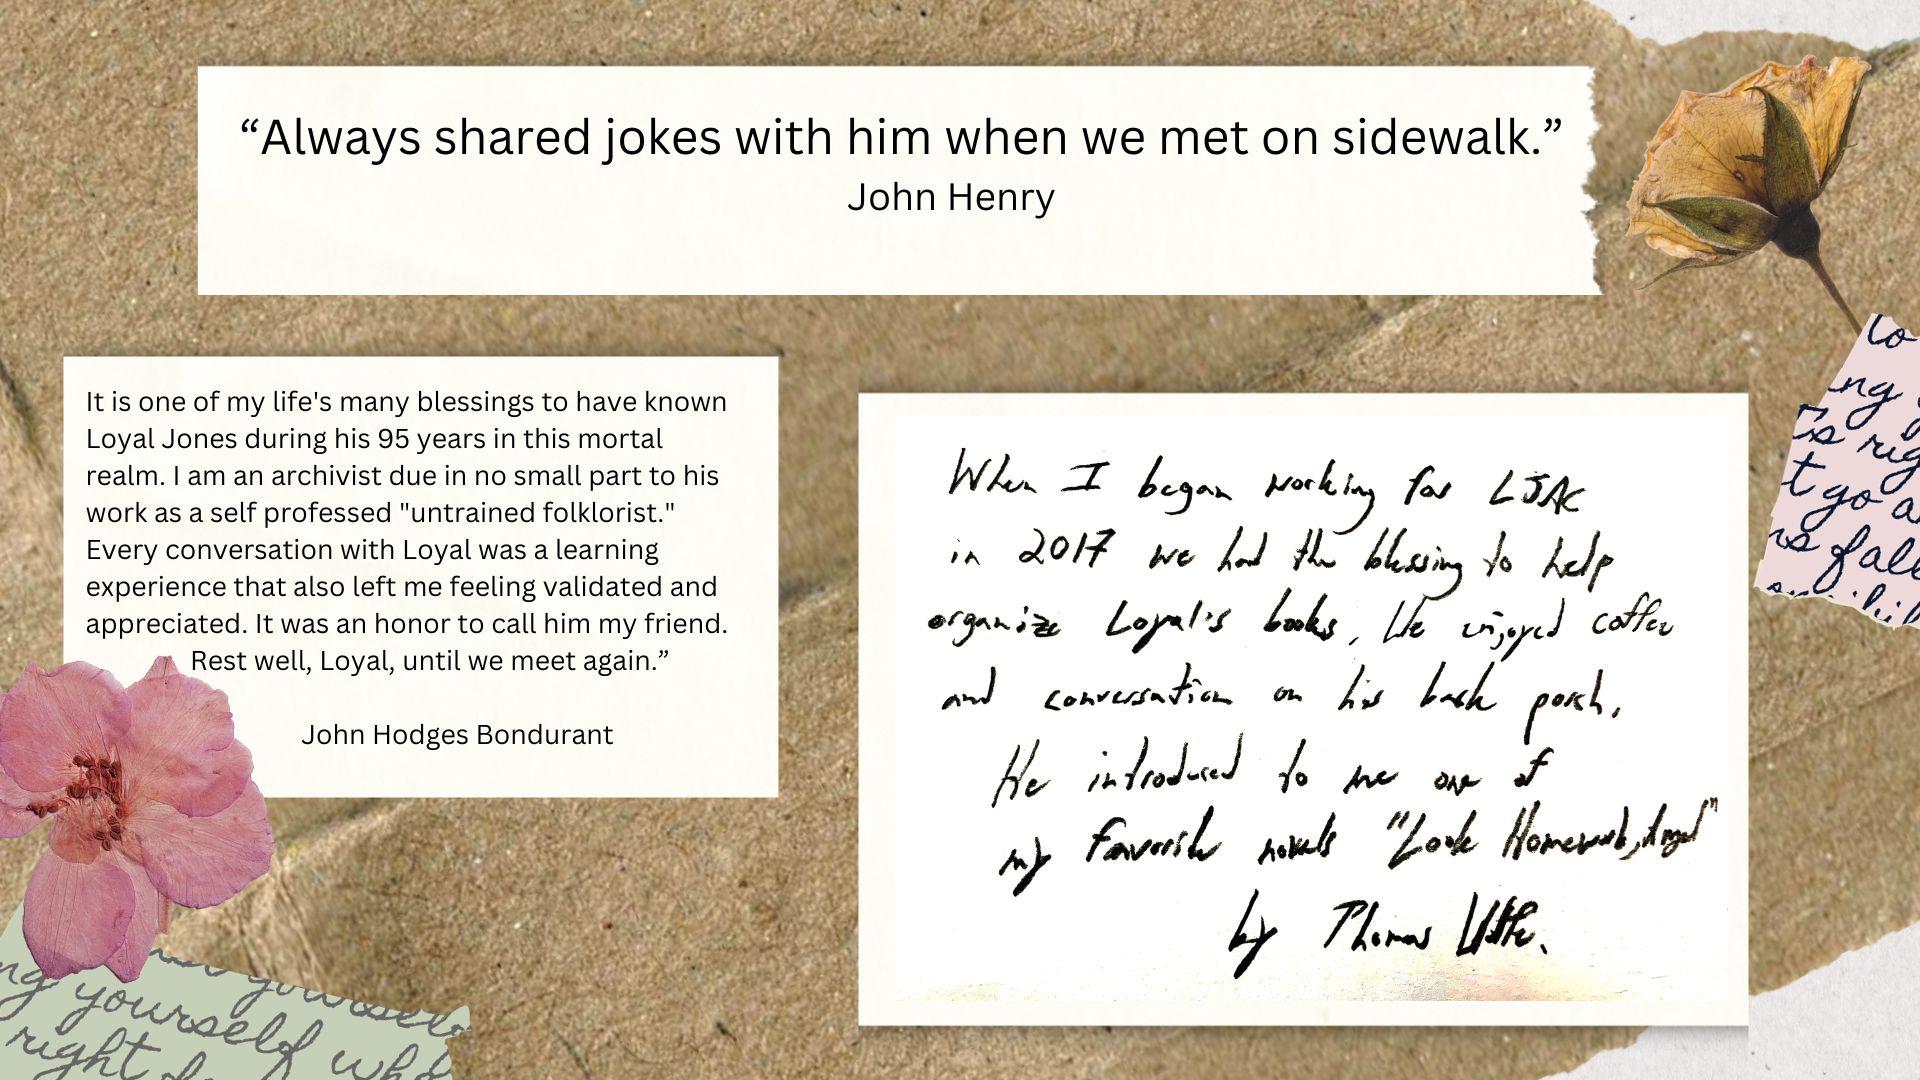 “Always shared jokes with him when we met on sidewalk.”
John Henry
It is one of my life's many blessings to have known
Loyal Jones during his 95 years in this mortal
realm. I am an archivist due in no small part to his
work as a self professed "untrained folklorist."
Every conversation with Loyal was a learning
experience that also left me feeling validated and
appreciated. It was an honor to call him my friend.
Rest well, Loyal, until we meet again.”
John Hodges Bondurant
When I began working for LJAC
in 2017 we had the blessing to help
organize Loyal's books, We enjoyed coffee
and conversation on his back porch,
He introduced to me one of
my favorite novels "Look Homeward, Angel"
by Thomas Wolfe.
to
ng
rig
t go a
fall
ng yourself
yourself who
right